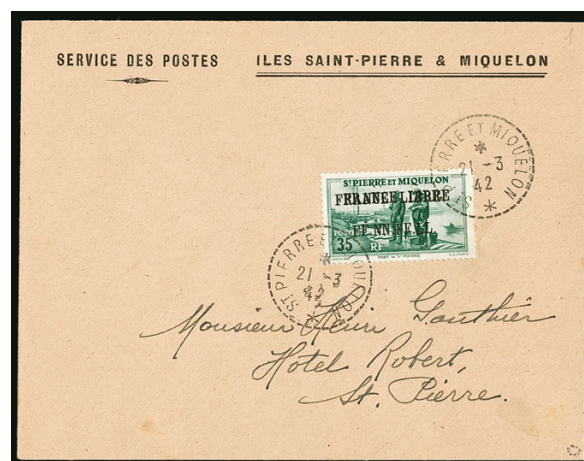 SERVICE DES POSTES ILES SAINT-PIERRE & MIQUELON
ST PIERRE ET MIQUELON
21 -3
42
ST PIERRE ET MIQUELON
FRANCE LIBRE
35 RF
ST PIERRE ET MIQUELON
21 -3
42
Monsieur Henri Gauthier
Hôtel Robert,
St. Pierre.